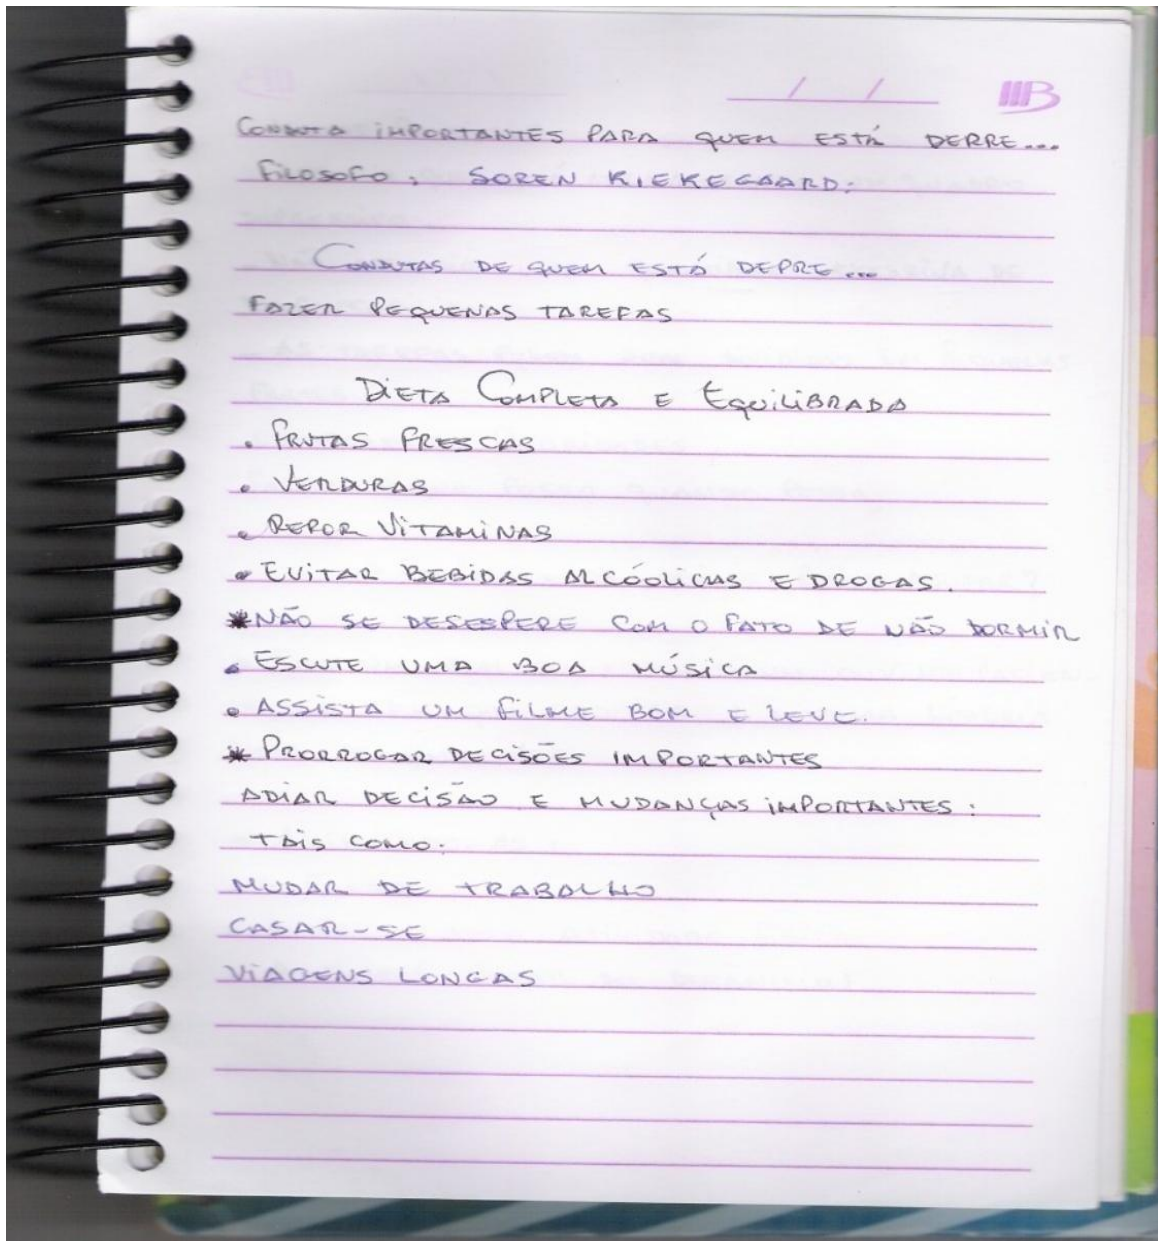 IIIB
CONDUTA IMPORTANTES PARA QUEM ESTÁ DEPRE...
FILOSOFO: SOREN KIEKEGAARD:
CONDUTAS DE QUEM ESTÁ DEPRE...
FAZER PEQUENAS TAREFAS
DIETA COMPLETA E EQUILIBRADA
. FRUTAS FRESCAS
. VERDURAS
. REPOR VITAMINAS
. EVITAR BEBIDAS ALCÓOLICAS E DROGAS.
*NÃO SE DESESPERE COM O FATO DE NÃO DORMIR
. ESCUTE UMA BOA MÚSICA
. ASSISTA UM FILME BOM E LEVE.
* PRORROGAR DECISÕES IMPORTANTES
ADIAR DECISÃO E MUDANÇAS IMPORTANTES:
TAIS COMO:
MUDAR DE TRABALHO
CASAR-SE
VIAGENS LONGAS